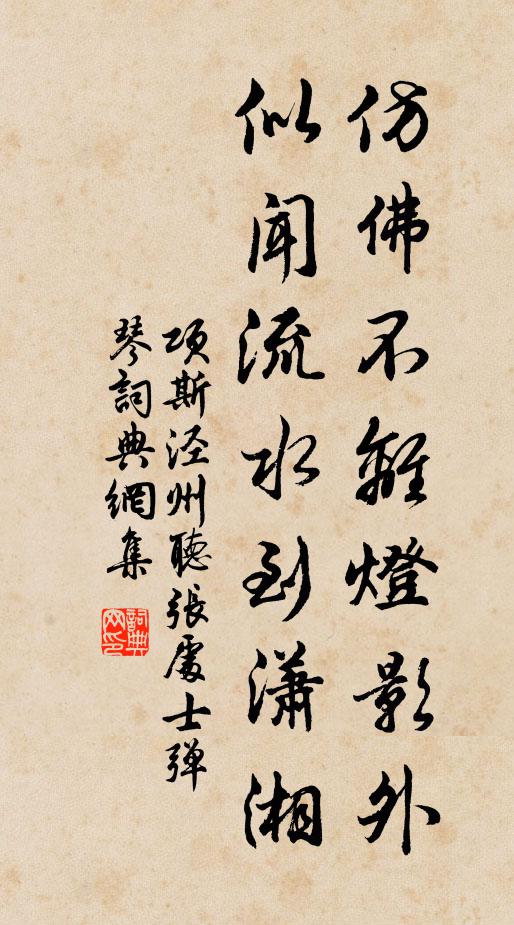 仿佛不離燈影外
似聞流水到瀟湘
項斯涇州聽張處士彈
琴詞典網集
詞典
网印